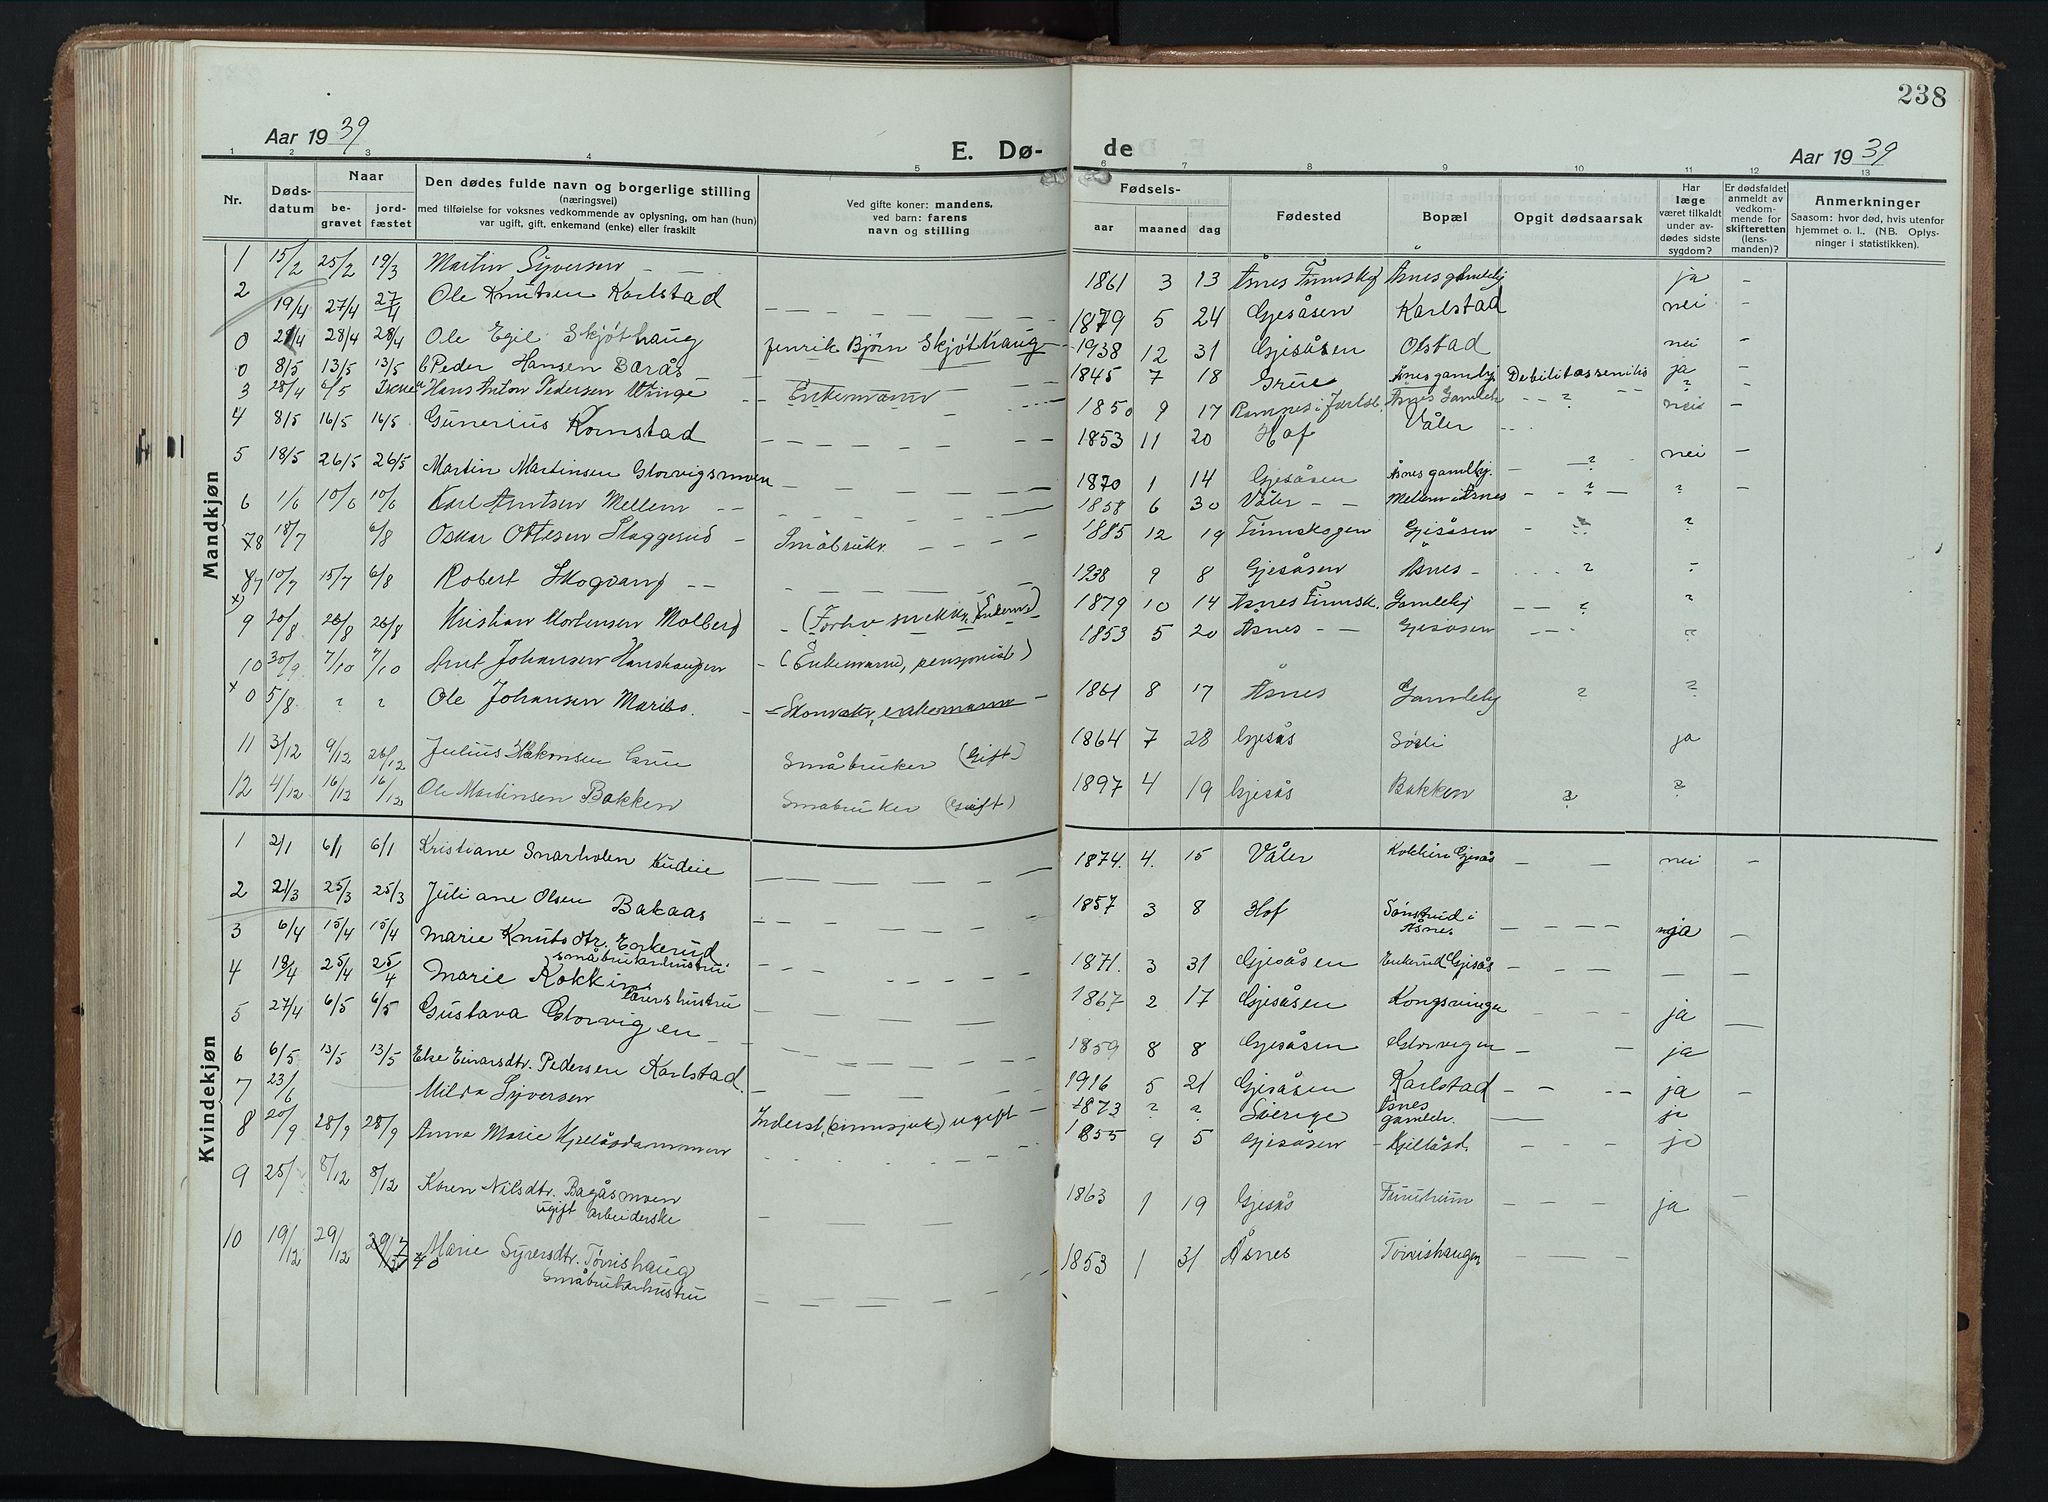 238
Aar 1939
E. Dø-
de
Aar 1939
1 2 3 4 5 6 7 8 9 10 11 12 13
Nr.
Døds-
datum
Naar
be-
gravet
jord-
fæstet
Den dødes fulde navn og borgerlige stilling
(næringsvei)
med tilføielse for voksnes vedkommende av oplysning, om han (hun)
var ugift, gift, enkemand (enke) eller fraskilt
Ved gifte koner: mandens,
ved barn: farens
navn og stilling
Fødsels-
aar maaned dag
Fødested
Bopæl
Opgit dødsaarsak
Har
læge
været tilkaldt
under av-
dødes sidste
sygdom?
Er dødsfaldet
anmeldt av
vedkom-
mende for
skifteretten
(lens-
manden)?
Anmerkninger
Saasom: hvor død, hvis utenfor
hjemmet o. l.. (NB. Oplys-
ninger i statistikken).
Mandkjøn
1 15/2 25/2 19/3 Martin Syversen - - 1861 3 13 Åsnes Finnskg Åsnes gamlehj ja -
2 19/4 27/4 27/4 Ole Knutsen Karlstad 1879 5 24 Gjesåsen Karlstad nei -
0 29/4 28/4 28/4 Ole Egil Skjøthaug Henrik Bjørn Skjøthaug 1938 12 31 Gjesåsen Olstad nei -
0 8/5 13/5 13/5 Peder Hansen Berås 1845 7 18 Grue Åsnes gamlehj Debilitas senilis ja -
3 28/4 6/5 Hans Anton Pedersen Winge Enkemann 1850 9 17 Ramnes i Jarlsb. Åsnes Gamleh ? ? -
4 8/5 16/5 16/5 Gunerius Kornstad 1853 11 20 Hof Våler nei -
5 18/5 26/5 26/5 Martin Martinsen Glorvigsmoen 1870 1 14 Gjesåsen Åsnes gamlhj. ? nei -
6 1/6 10/6 10/6 Karl Arntsen Mellem 1858 6 30 Våler Mellem i Åsnes ? ? -
78 18/7 6/8 Oskar Ottesen Skaggerud - Småbrukr 1885 12 19 Finnskogen Gjesåsen - ? -
87 10/7 15/7 6/8 Robert Skogvang - - 1938 9 8 Gjesåsen Åsnes - ? -
x) 9 20/8 26/8 26/8 Kristian Mortensen Malberg - (Forhv snekkr, Enkem) 1879 10 14 Åsnes Finnsk. Gamlehj - - ? ?
10 30/9 7/10 7/10 Arnt Johansen Hanshaugen - (Enkemann, pensjonist) 1853 5 20 Åsnes - - Gjesåsen ?
x 0 5/8 ? ? Ole Johansen Maribo. - enkemann - 1861 8 17 Åsnes Gamlehj ? ?
11 3/12 9/12 26/12 Julius Håkonsen Småbruker (Gift) 1864 7 28 Gjesås Sørli ja
12 4/12 16/12 16/12 Ole Martinsen Bakken Småbruker (Gift) 1897 4 19 Gjesås Bakken ? ?
Kvindekjøn
1 2/1 6/1 6/1 Kristiane Snarholen 1874. 4. 15 Våler Kokkin Gjesås - - nei -
2 21/3 25/3 25/3 Juliane Olsen Bakaas 1857 3 8 Hof Sønsrud i Åsnes ja -
3 6/4 15/4 15/4 Marie Knutsdtr. Enkerud
småbrukarhustru. 1871. 3 31 Gjesåsen Enkerud Gjesås
4 18/4 25/4 25/4 Marie Kokkin
lærershustru 1867 2 17 Gjesåsen Kongsvinger ja -
5 27/4 6/5 6/5 Gustava Glorvigen 1859 8 8 Gjesåsen Glorvigen - ja
6 6/5 13/5 13/5 Else Einarsdtr. Pedersen Karlstad. 1916 5 21 Gjesåsen Karlstad - - ja -
7 23/6 Milda Syversen 1873 ? ? Sverige Åsnes gamleh. ja
8 20/9 28/9 28/9 Anna Marie Kjelåsdammen Inderst, (sinnsjuk) ugift 1855 9 5 Gjesåsen - Kjellåsd. ja
9 25/ 8/12 8/12 Karen Nilsdtr. Bagåsmoen
ugift arbeiderske 1863 1 19 Gjesås Furuheim ja -
10 19/12 29/12 Marie Syversdtr. Tørrishaug
Småbrukarhustru 1853 1 31 Åsnes Tørrishaugen